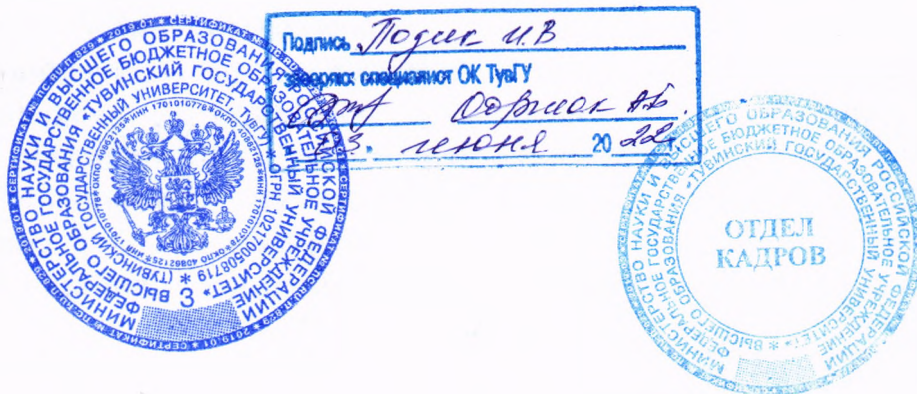 Подпись
заверяю: специалист ОК ТувГУ
июня 20 22
МИНИСТЕРСТВО НАУКИ И ВЫСШЕГО ОБРАЗОВАНИЯ РОССИЙСКОЙ ФЕДЕРАЦИИ
ФЕДЕРАЛЬНОЕ ГОСУДАРСТВЕННОЕ БЮДЖЕТНОЕ ОБРАЗОВАТЕЛЬНОЕ УЧРЕЖДЕНИЕ
ВЫСШЕГО ОБРАЗОВАНИЯ «ТУВИНСКИЙ ГОСУДАРСТВЕННЫЙ УНИВЕРСИТЕТ»
(ТУВИНСКИЙ ГОСУДАРСТВЕННЫЙ УНИВЕРСИТЕТ, ТувГУ) * ОГРН 1021700508719 *
3
МИНИСТЕРСТВО НАУКИ И ВЫСШЕГО ОБРАЗОВАНИЯ РОССИЙСКОЙ ФЕДЕРАЦИИ
ФЕДЕРАЛЬНОЕ ГОСУДАРСТВЕННОЕ БЮДЖЕТНОЕ ОБРАЗОВАТЕЛЬНОЕ УЧРЕЖДЕНИЕ
ВЫСШЕГО ОБРАЗОВАНИЯ «ТУВИНСКИЙ ГОСУДАРСТВЕННЫЙ УНИВЕРСИТЕТ» *
ОТДЕЛ
КАДРОВ